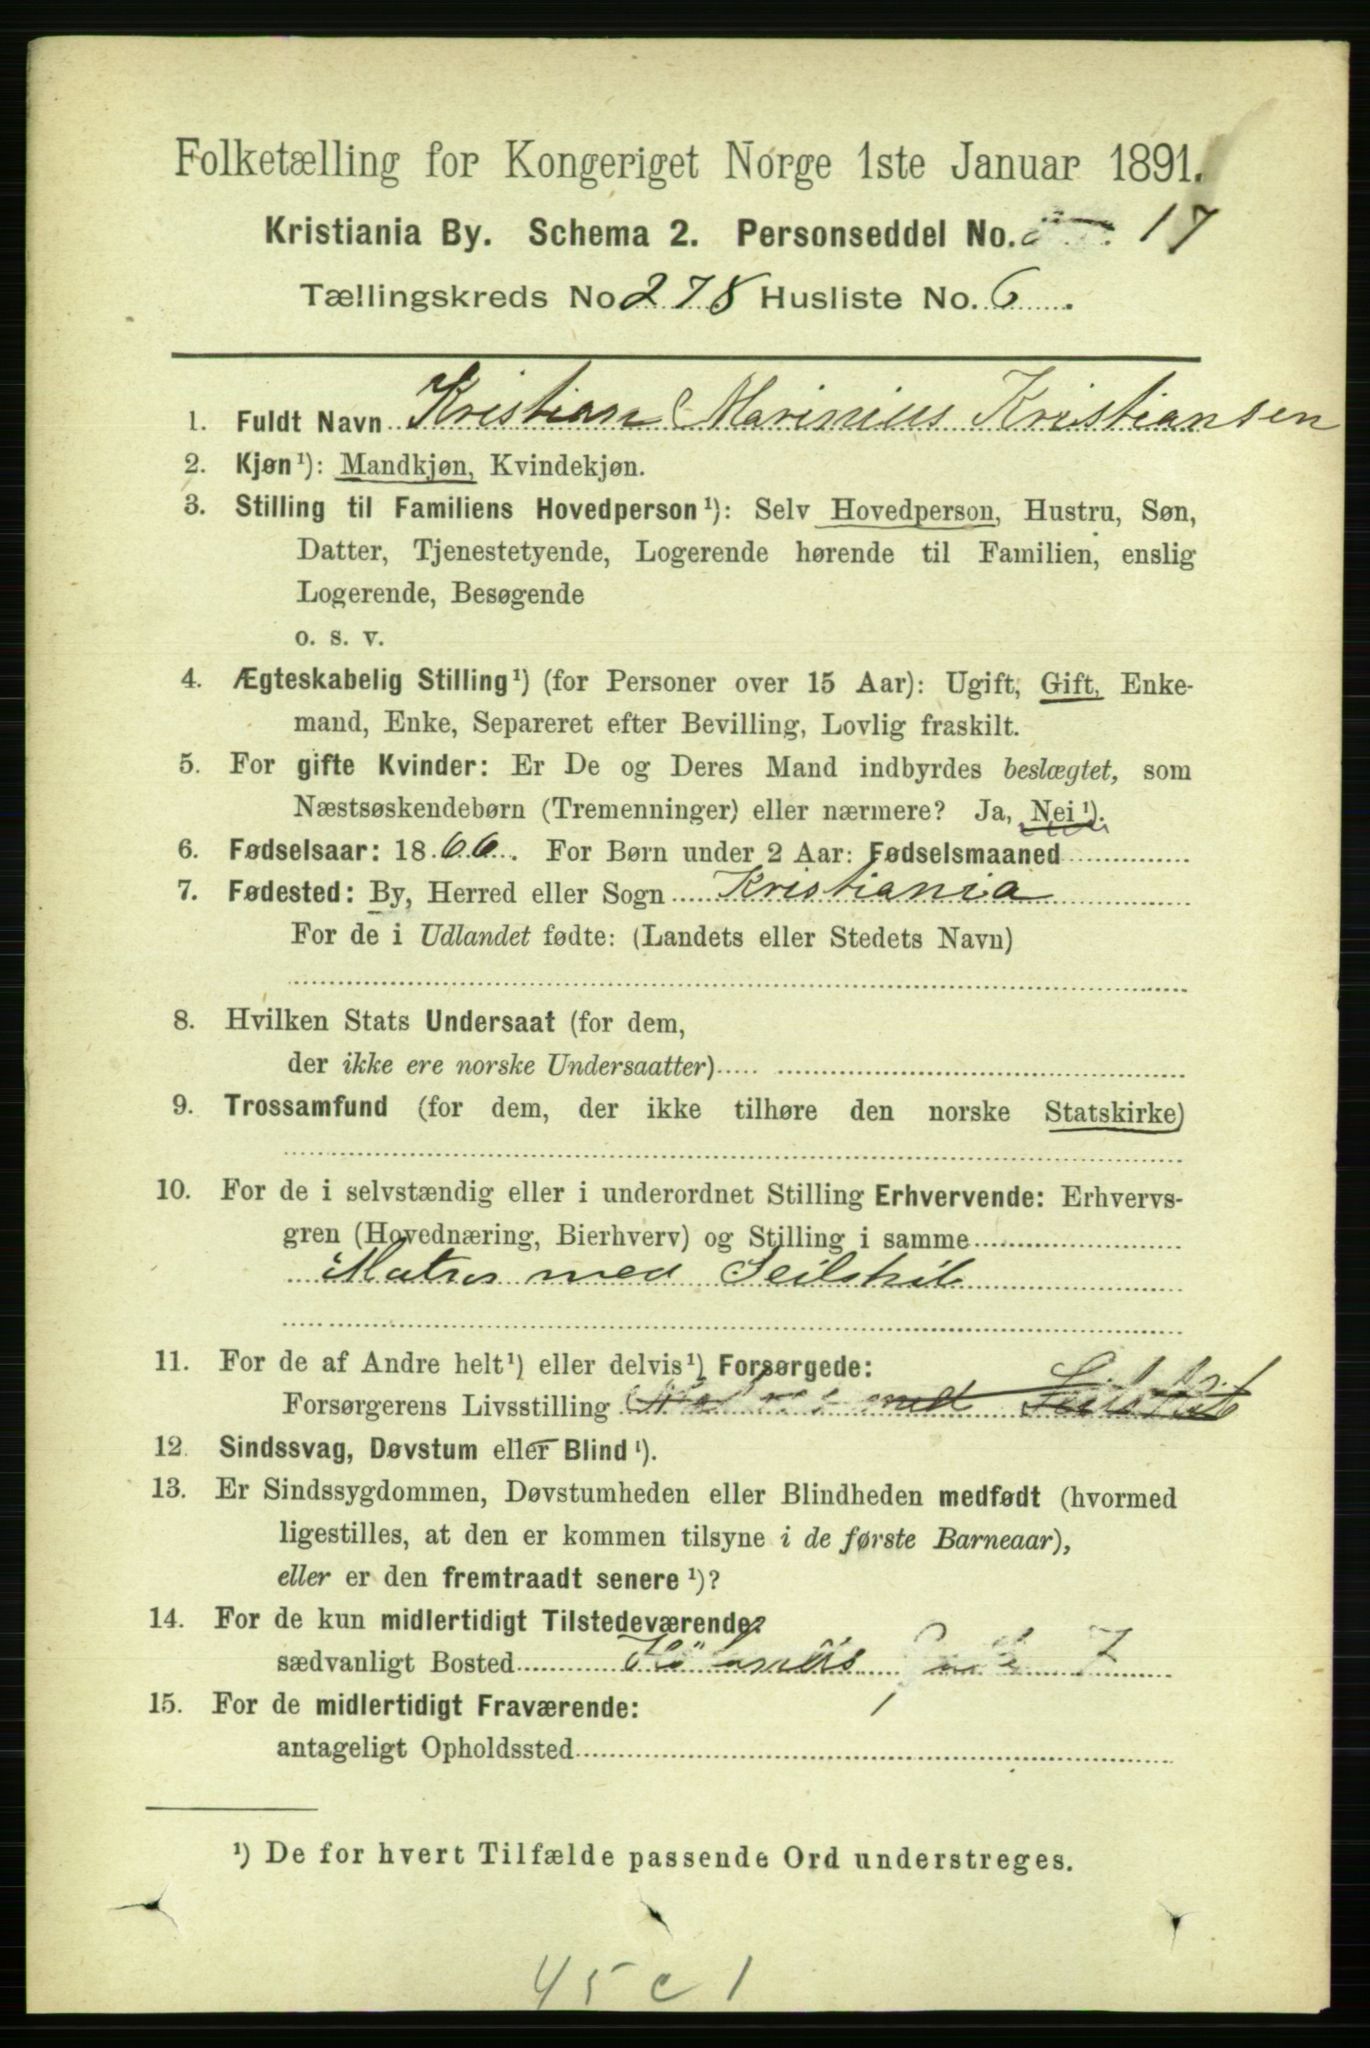 Folketælling for Kongeriget Norge 1ste Januar 1891.
Kristiania By. Schema 2. Personseddel No. 17
Tællingskreds No 278 Husliste No. 6
1. Fuldt Navn Kristian Marinius Kristiansen
2. Kjøn¹): Mandkjøn, Kvindekjøn.
3. Stilling til Familiens Hovedperson¹): Selv Hovedperson, Hustru, Søn,
Datter, Tjenestetyende, Logerende hørende til Familien, enslig
Logerende, Besøgende
o. s. v.
4. Ægteskabelig Stilling¹) (for Personer over 15 Aar): Ugift, Gift, Enke-
mand, Enke, Separeret efter Bevilling, Lovlig fraskilt.
5. For gifte Kvinder: Er De og Deres Mand indbyrdes beslægtet, som
Næstsøskendebørn (Tremenninger) eller nærmere? Ja, Nei¹).
6. Fødselsaar: 1866. For Børn under 2 Aar: Fødselsmaaned
7. Fødested: By, Herred eller Sogn Kristiania
For de i Udlandet fødte: (Landets eller Stedets Navn)
8. Hvilken Stats Undersaat (for dem,
der ikke ere norske Undersaatter)
9. Trossamfund (for dem, der ikke tilhøre den norske Statskirke)
10. For de i selvstændig eller i underordnet Stilling Erhvervende: Erhvervs-
gren (Hovednæring, Bierhverv) og Stilling i samme
Matros med Seilskib
11. For de af Andre helt¹) eller delvis¹) Forsørgede:
Forsørgerens Livsstilling Matros med Seilskib
12. Sindssvag, Døvstum eller Blind¹).
13. Er Sindssygdommen, Døvstumheden eller Blindheden medfødt (hvormed
ligestilles, at den er kommen tilsyne i de første Barneaar),
eller er den fremtraadt senere¹)?
14. For de kun midlertidigt Tilstedeværende:
sædvanligt Bosted 7
15. For de midlertidigt Fraværende:
antageligt Opholdssted
¹) De for hvert Tilfælde passende Ord understreges.
45 c 1